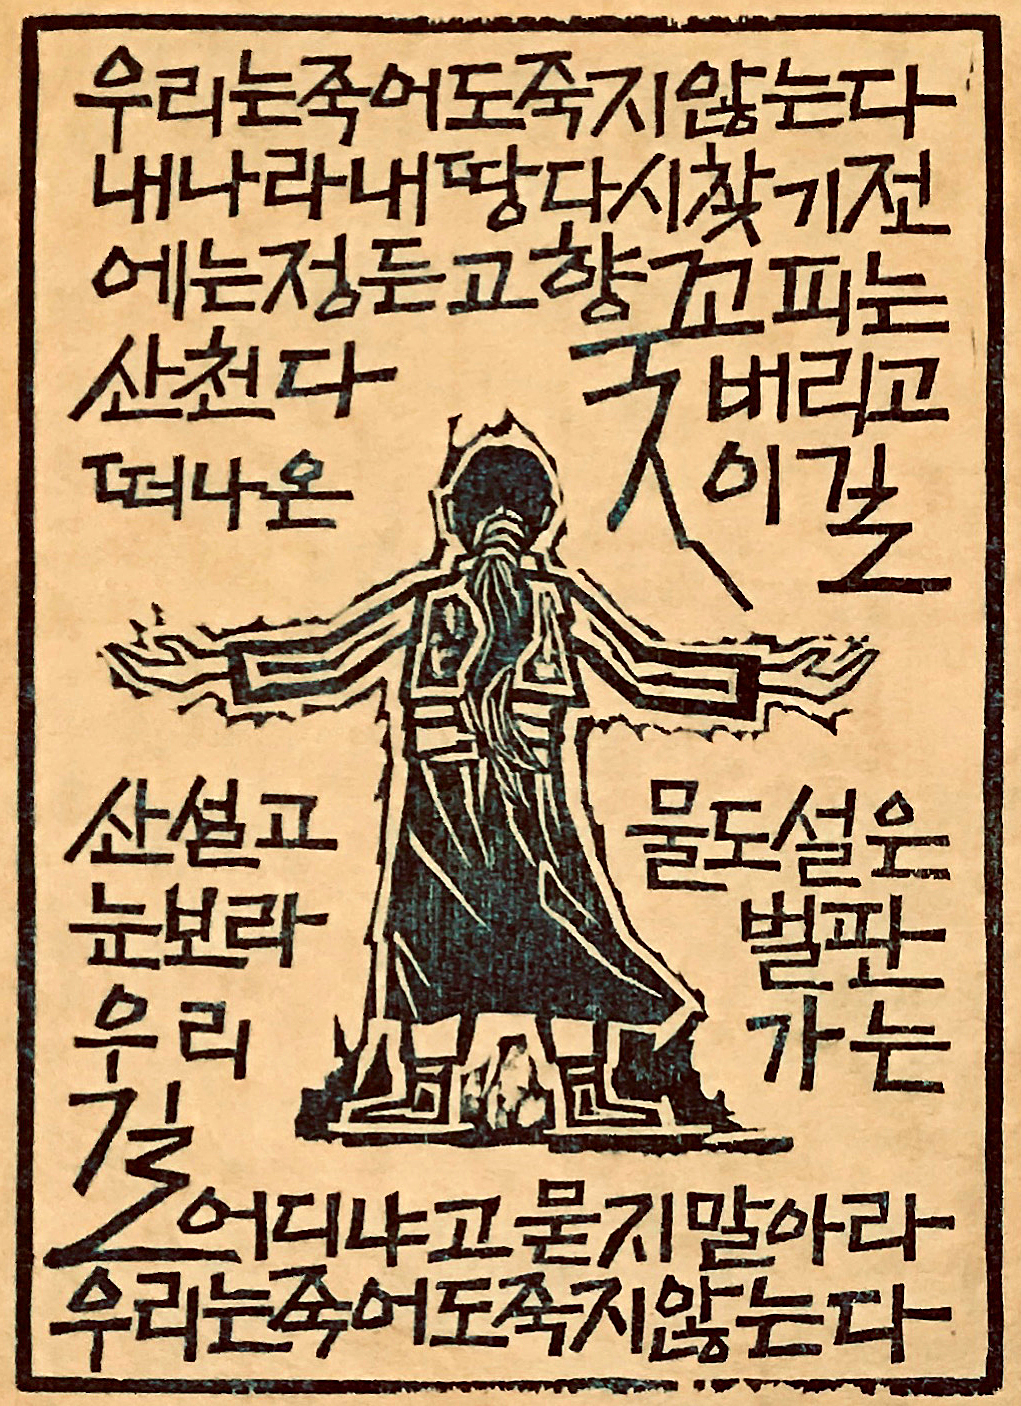 우리는죽어도죽지않는다
내나라내땅다시찾기전
에는정든고향 꽃피는
산천다 버리고
떠나온 이길
산설고 물도설은
눈보라 벌판
우리 가는
길어디냐고묻지말아라
우리는죽어도죽지않는다